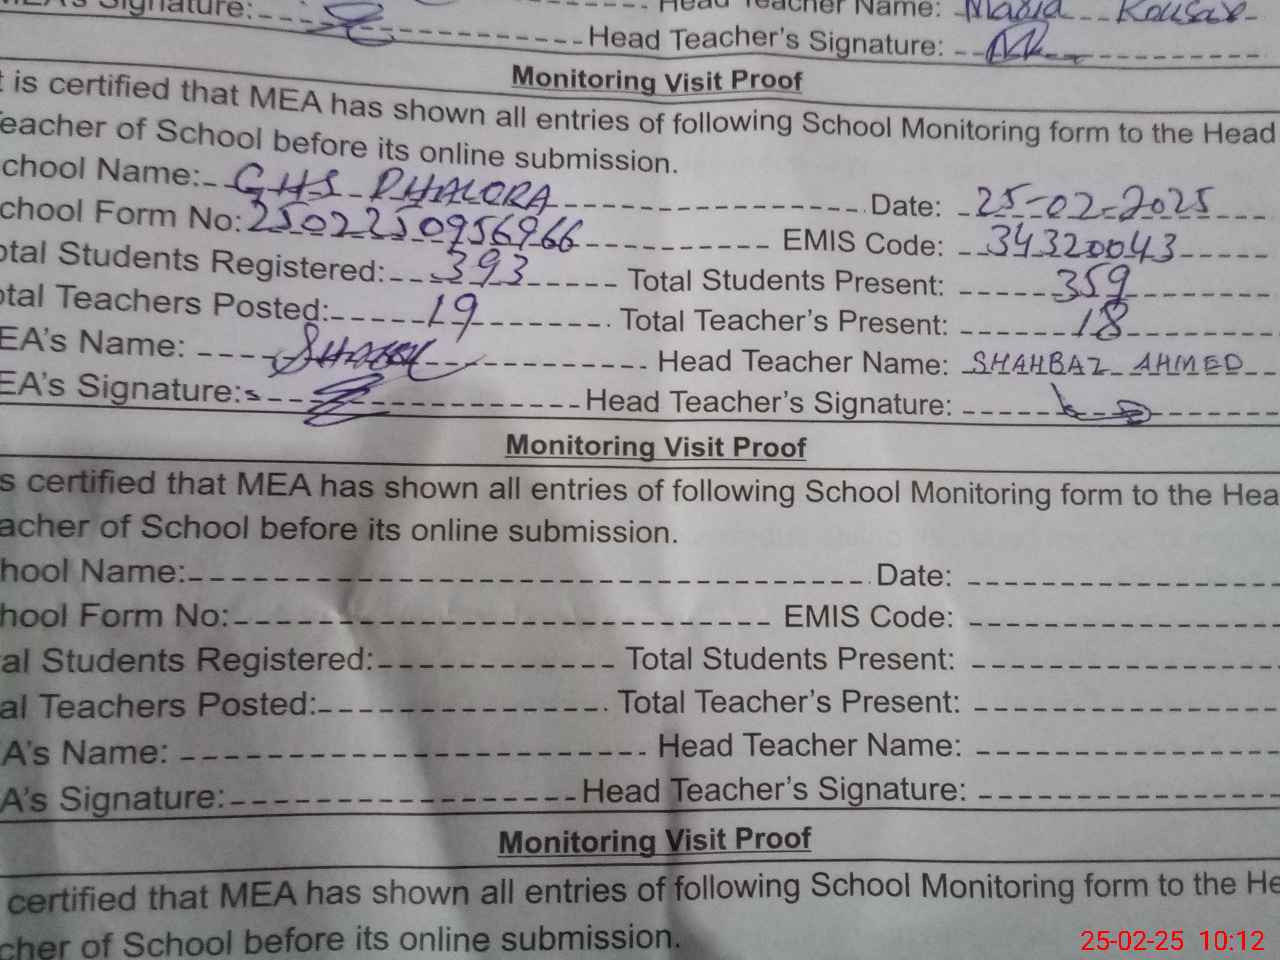 Signature: Head Teacher Name: Maria Kousar
Head Teacher's Signature:
Monitoring Visit Proof
t is certified that MEA has shown all entries of following School Monitoring form to the Head
eacher of School before its online submission.
chool Name: GHS DHALORA Date: 25-02-2025
chool Form No: 2502250956966 EMIS Code: 34320043
otal Students Registered: 393 Total Students Present: 359
otal Teachers Posted: 19 Total Teacher's Present: 18
EA's Name: Head Teacher Name: SHAHBAZ AHMED
EA's Signature: Head Teacher's Signature:
Monitoring Visit Proof
s certified that MEA has shown all entries of following School Monitoring form to the Hea
acher of School before its online submission.
hool Name: Date:
hool Form No: EMIS Code:
al Students Registered: Total Students Present:
al Teachers Posted: Total Teacher's Present:
A's Name: Head Teacher Name:
A's Signature: Head Teacher's Signature:
Monitoring Visit Proof
certified that MEA has shown all entries of following School Monitoring form to the He
cher of School before its online submission.
25-02-25 10:12